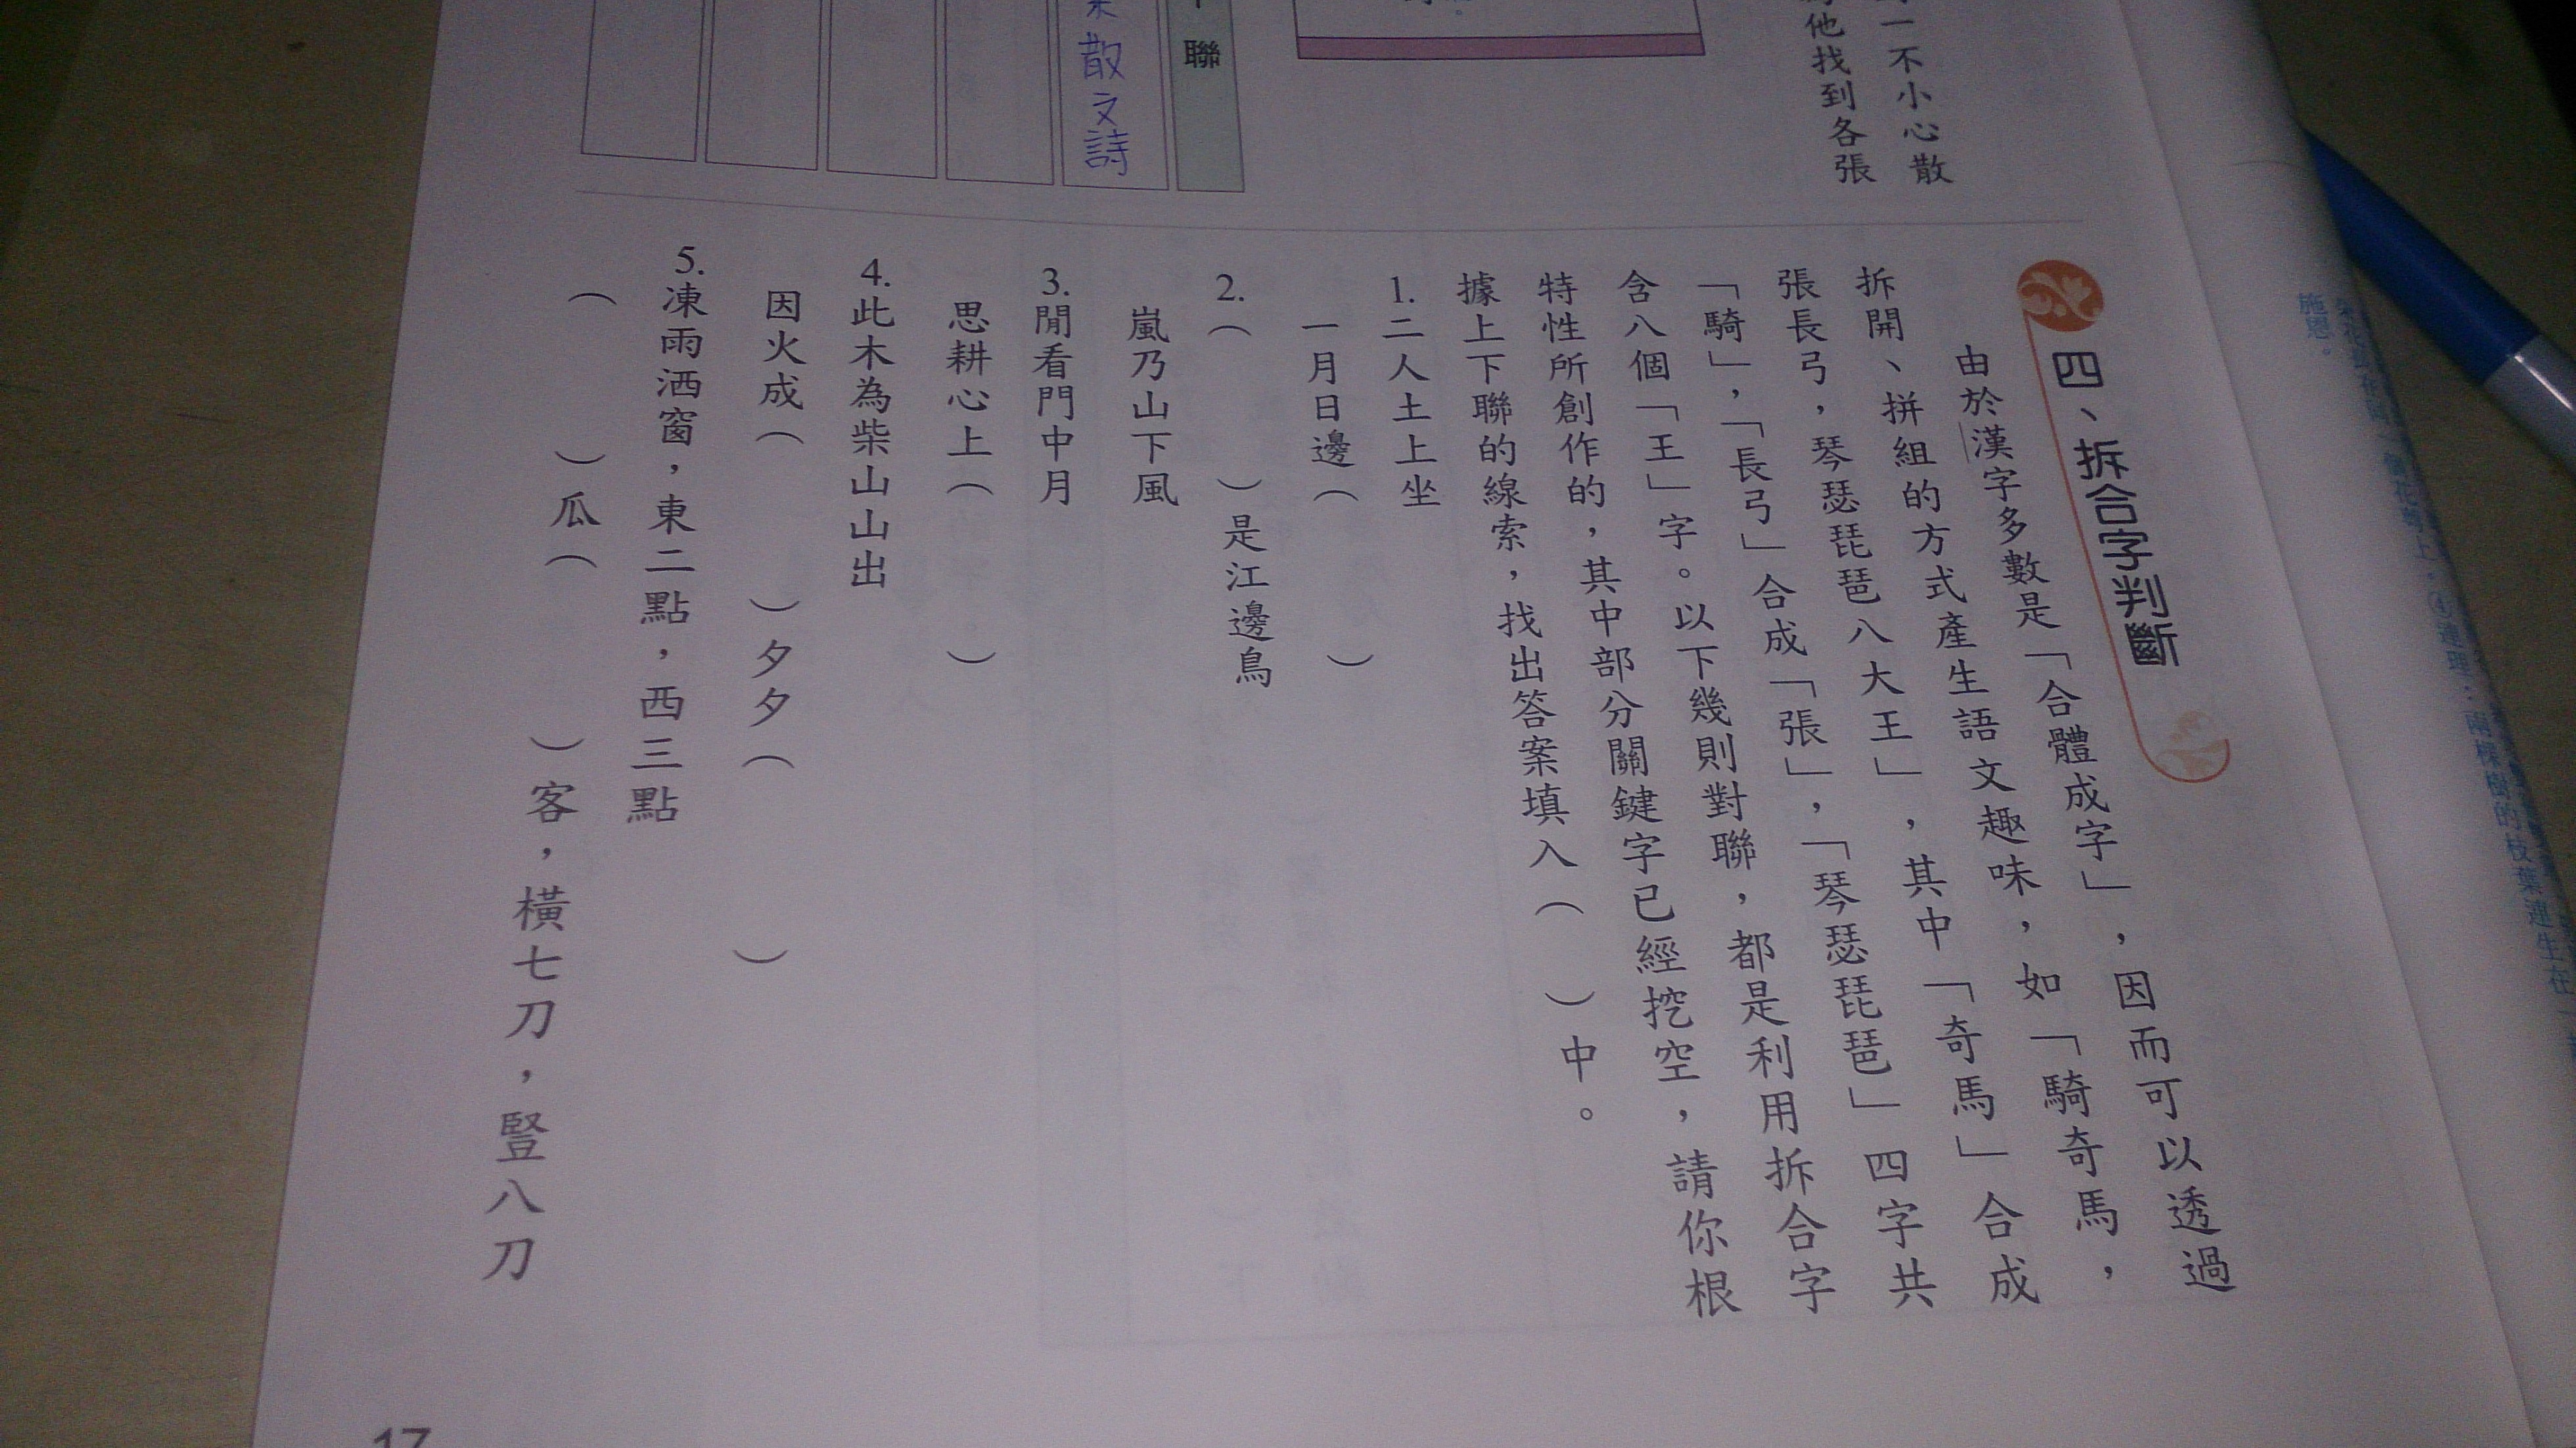 一不小心散
他找到各張
聯
散文詩
四、拆合字判斷
由於漢字多數是「合體成字」，因而可以透過
拆開、拼組的方式產生語文趣味，如「騎奇馬，
張長弓，琴瑟琵琶八大王」，其中「奇馬」合成
「騎」，「長弓」合成「張」，「琴瑟琵琶」四字共
含八個「王」字。以下幾則對聯，都是利用拆合字
特性所創作的，其中部分關鍵字已經挖空，請你根
據上下聯的線索，找出答案填入（　）中。
1.二人土上坐
一月日邊（　）
2.（　）是江邊鳥
嵐乃山下風
3.閒看門中月
思耕心上（　）
4.此木為柴山山出
因火成（　）夕夕（　）
5.凍雨洒窗，東二點，西三點
（　）瓜（　）客，橫七刀，豎八刀
施恩。
17